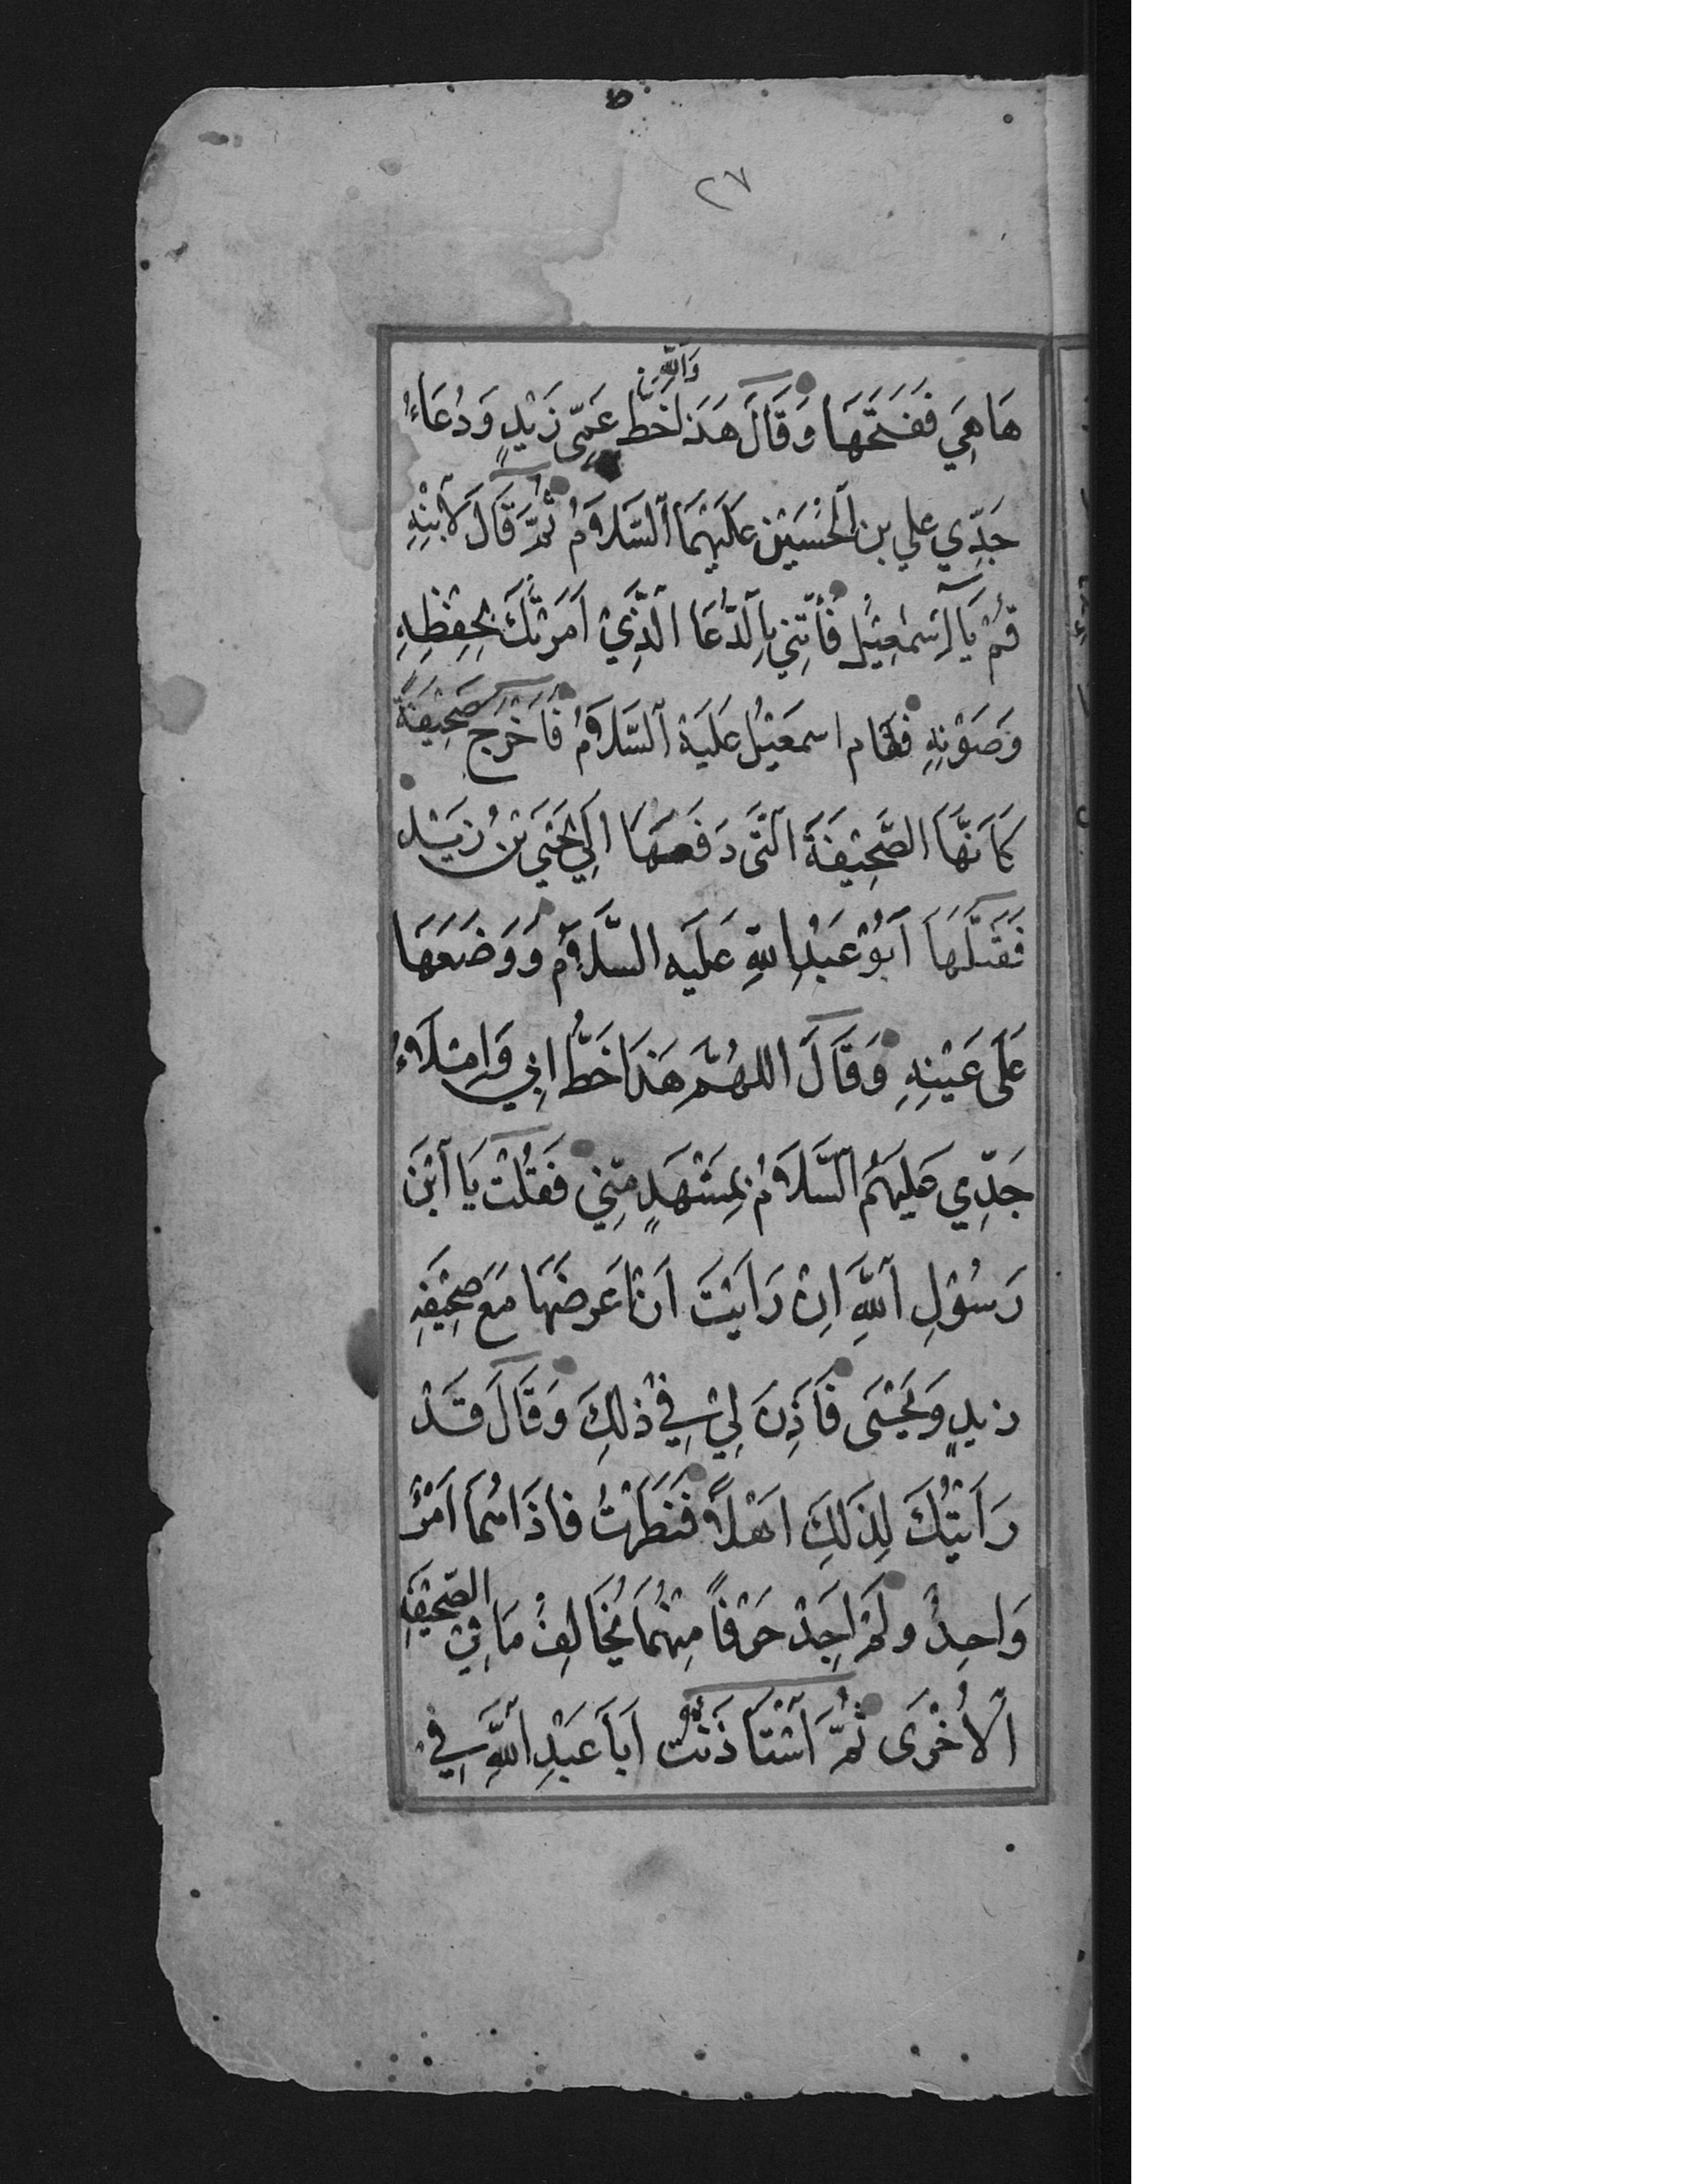 ٢٧
وَاللّٰهِ
هَاهِيَ فَفَتَحَهَا وَقَالَ هَذَا خَطُّ عَمِّى زَيْدٍ وَدُعَاءُ
جَدِّي علي بن الْحُسَيْنِ عَلَيْهِمَا السَّلَامُ ثُمَّ قَالَ لِابْنِهِ
قُمْ يَا اِسْمٰعِيْلُ فَأْتِنِي بِالدُّعَا الَّذِيْ اَمَرْتُكَ بِحِفْظِهِ
وَصَوْنِهِ فقام اسمعيْلُ عَلَيْهِ السَّلَامُ فَاَخْرَجَ صَحِيْفَةً
كَاَنَّهَا الصَّحِيْفَةَ الَّتِى دَفَعَهَا اِلَيَّ يَحْيَى بْنُ زَيْدٍ
فَقَبَّلَهَا اَبُوْ عَبْدِ اللهِ عَلَيهِ السَّلَامُ وَوَضَعَهَا
عَلَى عَيْنِهِ وَقَالَ اللهُمَّ هَذَا خَطُّ ابِي وَامْلَاءُ
جَدِّي عَلَيْهِمُ السَّلَامُ بِمَشْهَدٍ مِّنِي فَقُلْتُ يَا ابْنَ
رَسُوْلِ اللهِ اِنْ رَاَيْتَ اَنْ اَعرضَهَا مَعَ صَحِيْفَةِ
زيدٍ وَيَحْيَى فَاَذِنَ لِيْ فِيْ ذٰلِكَ وَقَالَ قَدْ
رَاَيْتُكَ لِذَلِكَ اَهْلًا فَنَظَرْتُ فاذَا هُمَا اَمْرٌ
وَاحِدٌ ولَمْ اَجِدْ حَرْفًا مِنْهُمَا يُخَالِفُ مَا فِيْ الصَّحِيْفَةِ
الْاُخْرَى ثُمَّ اسْتَاْذَنْتُ اَبَا عَبْدِ اللهِ فِيْ